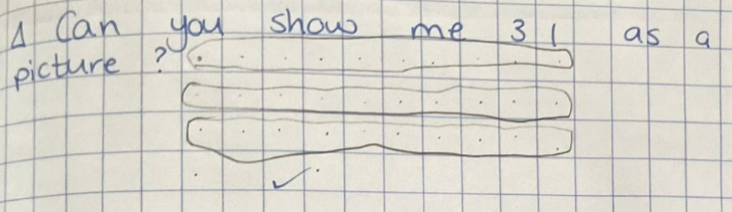 Δ Can you show me 31 as a
picture ?